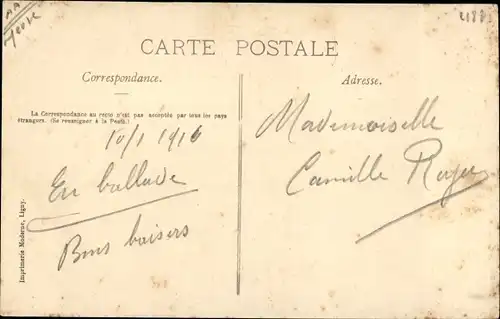 CARTE POSTALE
Correspondance.
Adresse.
La Correspondance au recto n'est pas acceptée par tous les pays
étrangers. (Se renseigner à la Poste.)
10/1 1916
En ballade
Bons baisers
Mademoiselle
Camille
Imprimerie Moderne, Ligny.